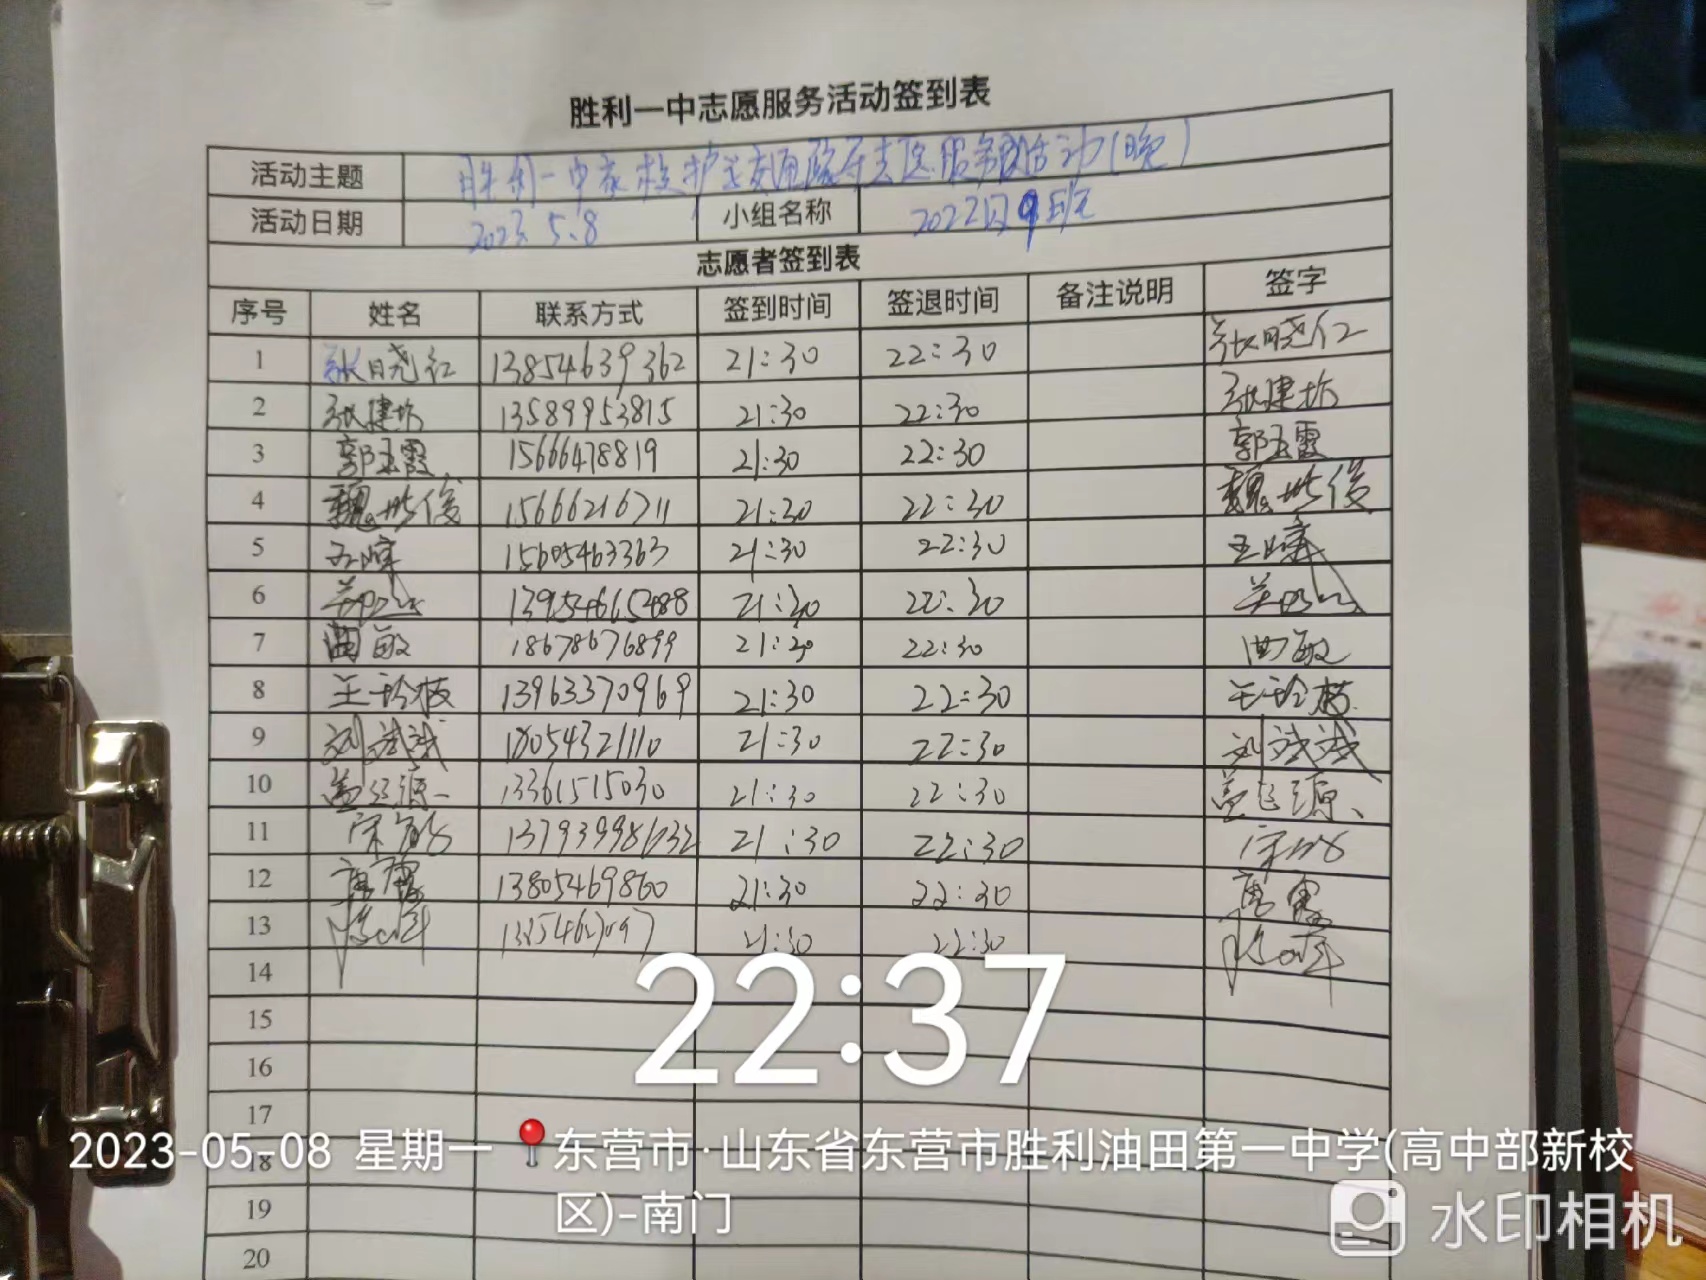 胜利一中志愿服务活动签到表
活动主题 胜利一中家校护学交通疏导志愿服务活动(晚)
活动日期 2023.5.8 小组名称 2022级9班
志愿者签到表
序号 姓名 联系方式 签到时间 签退时间 备注说明 签字
1 张晓红 13854639362 21:30 22:30 张晓红
2 张建 13589953815 21:30 22:30 张建
3 郭玉霞 15666478819 21:30 22:30 郭玉霞
4 魏世俊 15666216711 21:30 22:30 魏世俊
5 15605463363 21:30 22:30
6 21:30 22:30
7 曲敏 18678676899 21:30 22:30 曲敏
8 王玲枝 13963370969 21:30 22:30 王玲枝
9 刘斌斌 18054321110 21:30 22:30 刘斌斌
10 13361515030 21:30 22:30
11 宋 13793998632 21:30 22:30 宋
12 13805469860 21:30 22:30
13 21:30 22:30
14
15
16
17
18
19
20
22:37
2023-05-08 星期一 东营市·山东省东营市胜利油田第一中学(高中部新校
区)-南门
水印相机